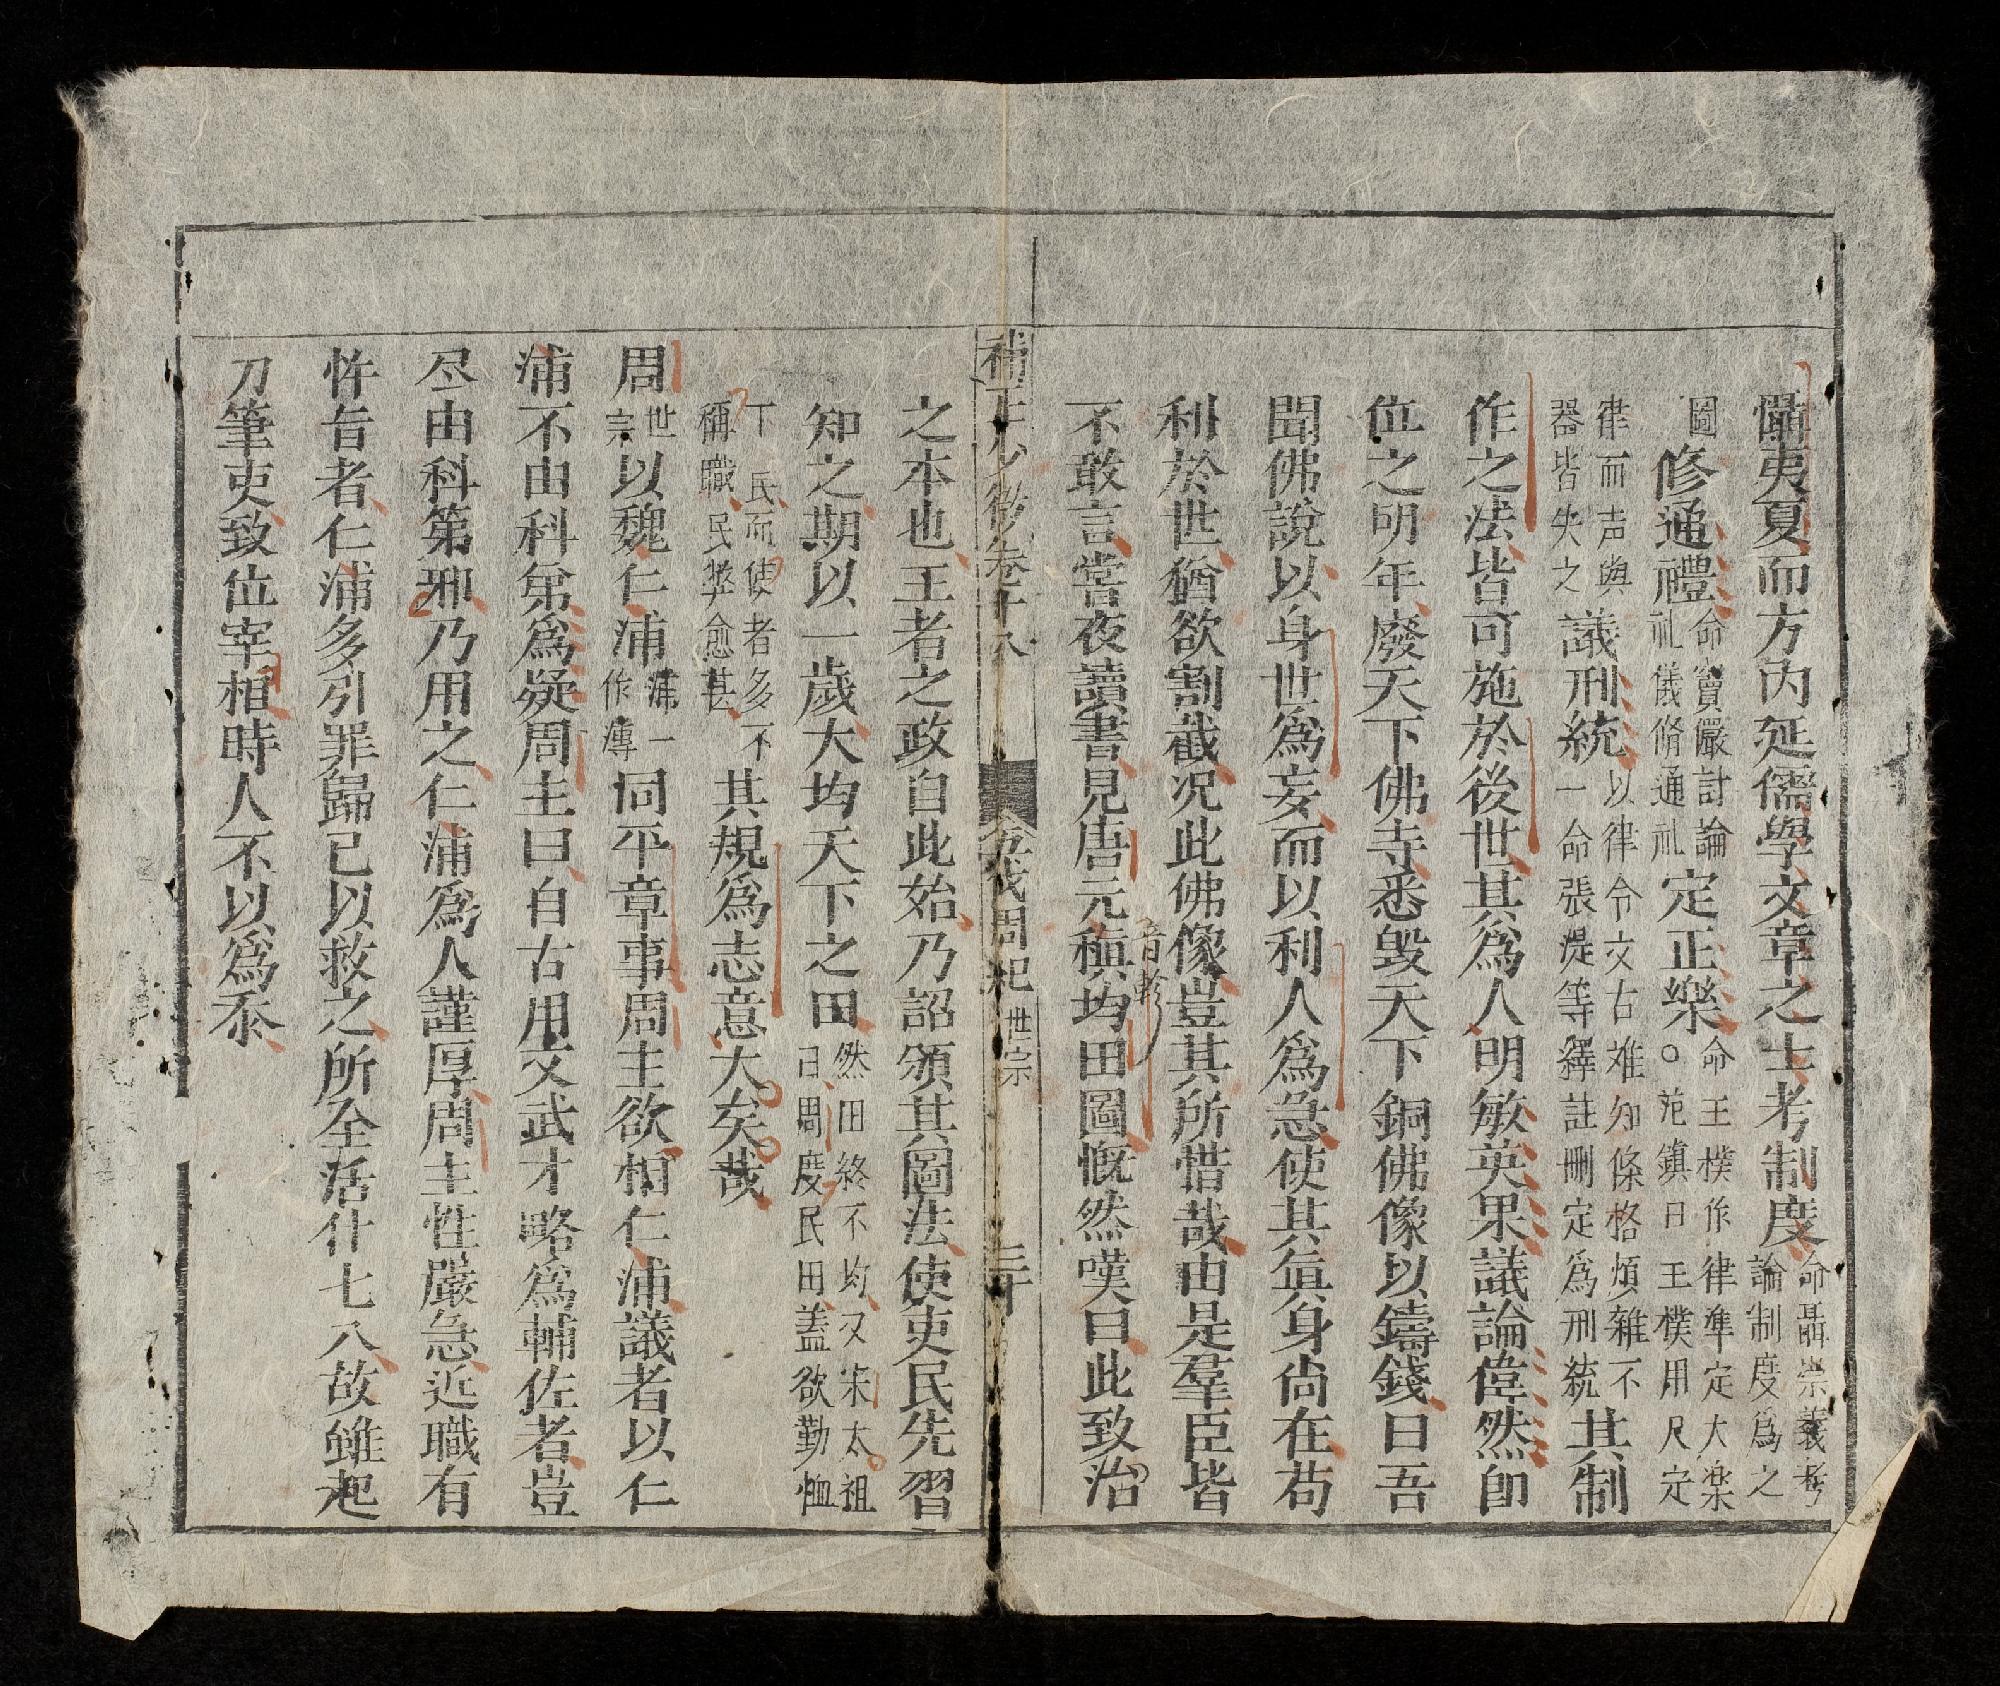 懾夷夏而方内延儒學文章之士考制度命聶崇義考論制度爲之
圖修通禮命竇儼討論礼儀脩通礼定正樂命王樸作律準定大楽〇范鎮曰王樸用尺定
律而声與器皆失之議刑統以律令文古难知條格煩雜不一命張湜等釋註刪定爲刑統其制
作之法皆可施於後世其爲人明敏英果議論偉然卽
位之明年廢天下佛寺悉毀天下銅佛像以鑄錢曰吾
聞佛說以身世爲妄而以利人爲急使其真身尚在苟
利於世猶欲割截况此佛像豈其所惜哉由是羣臣皆
不敢言嘗夜讀書見唐元稹均田圖慨然嘆曰此致治
音軫
補正少微卷十八 五代周紀 世宗 三十
之本也王者之政自此始乃詔頒其圖法使吏民先習
知之期以一歲大均天下之田然田終不均又宋太祖曰周度民田盖欲勤恤
下民而使者多不稱職民弊愈甚其規爲志意大矣哉
周世宗以魏仁浦浦一作溥同平章事周主欲相仁浦議者以仁
浦不由科第爲疑周主曰自古用文武才略爲輔佐者豈
尽由科第邪乃用之仁浦爲人謹厚周主性嚴急近職有
忤旨者仁浦多引罪歸己以救之所全活什七八故雖起
刀筆吏致位宰相時人不以爲忝